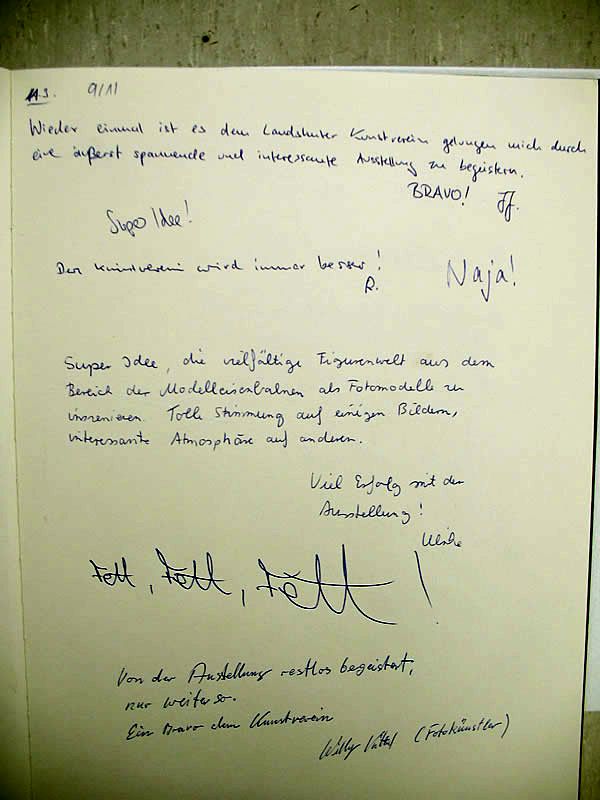 9/11
Wieder einmal ist es dem Landshuter Kunstverein gelungen mich durch
eine äußerst spannende und interessante Ausstellung zu begeistern.
BRAVO!
Super Idee!
Der Kunstverein wird immer besser!
R.
Naja!
Super Idee, die vielfältige Figurenwelt aus dem
Bereich der Modelleisenbahnen als Fotomodelle zu
inszenieren. Tolle Stimmung auf einigen Bildern,
interessante Atmosphäre auf anderen.
Viel Erfolg mit der
Ausstellung!
Ulrike
Fett, Fett, Fett!
Von der Austellung restlos begeistert,
nur weiter so.
Ein Bravo dem Kunstverein
Willy (Fotokünstler)